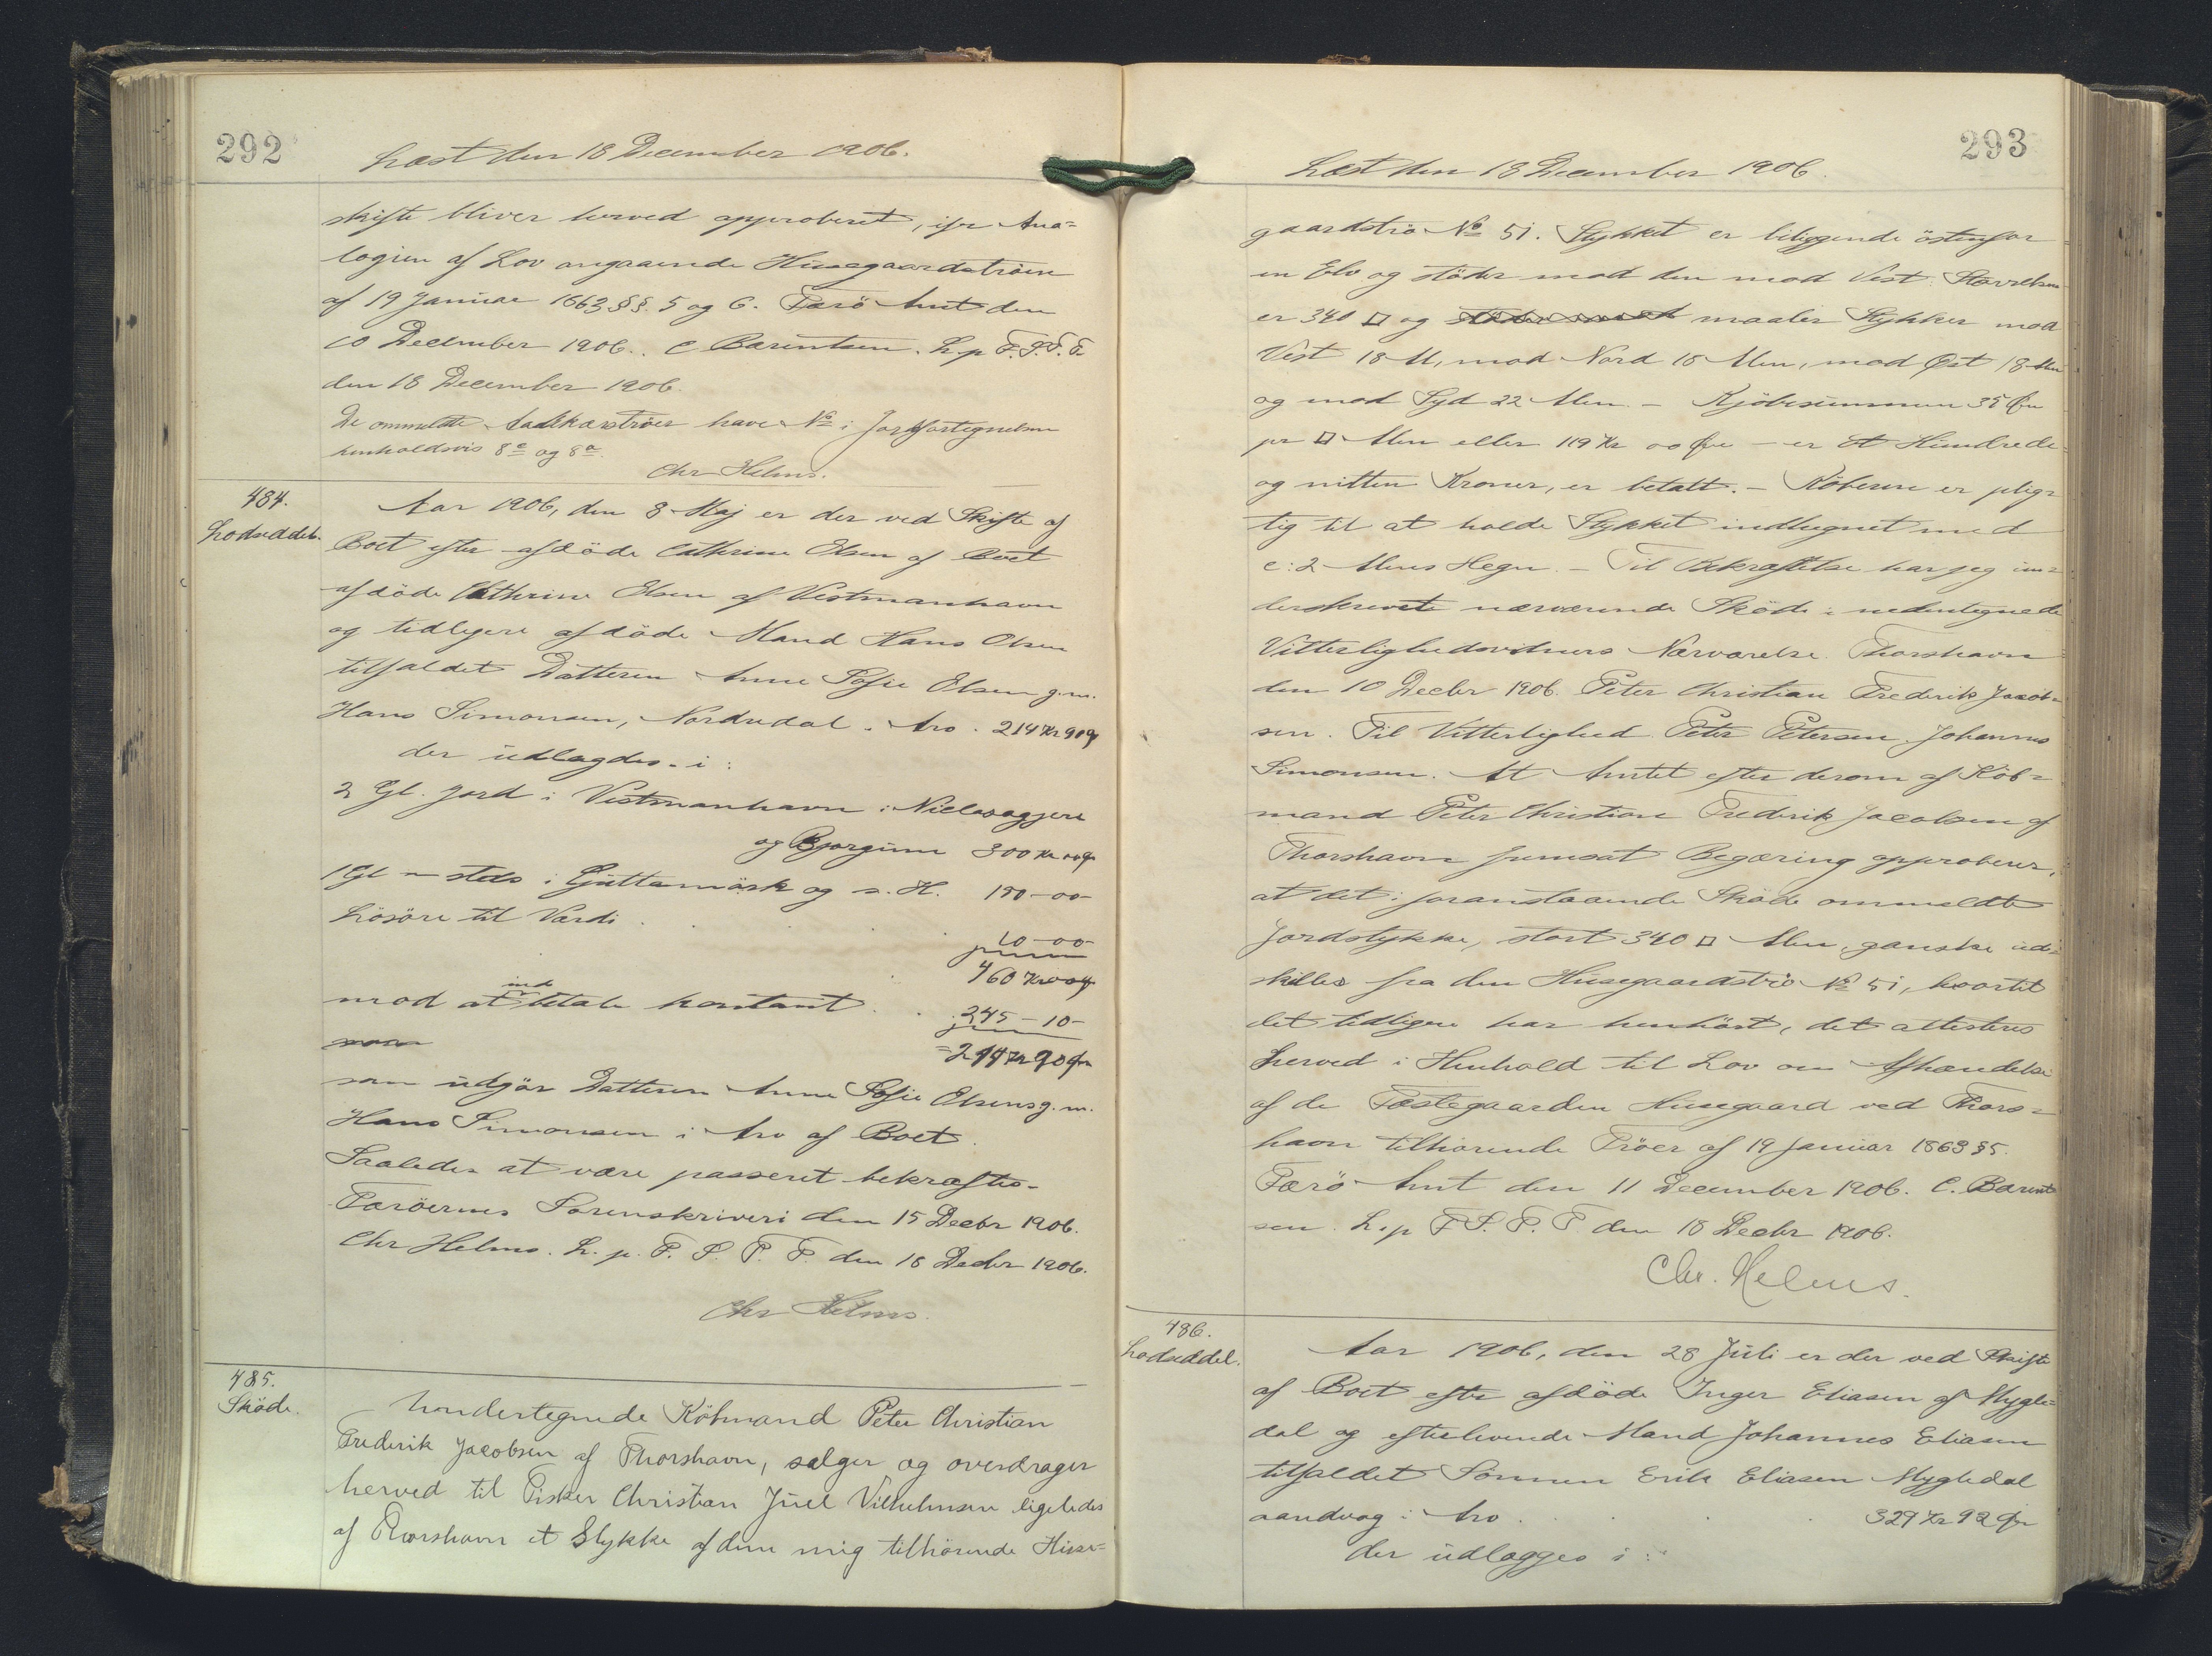 292
Læst den 18 December 1906.
skifte bliver herved approberet, ifr Ana=
logien af Lov angaaende Husegaardstrøen
af 19 Januar 1863 §§. 5 og 6. Færø Amt den
10 December 1906. C Bærentsen. L. p F. S. T. F.
den 18 December 1906.
De ommeldte trøer have No i Jordfortegnelsen
henholdsvis 8c og 8a.
Chr Helms.
484.
Lodseddel.
Aar 1906, den 8 Maj er der ved Skifte af
Boet efter afdøde Cathrine Olsen af Boet
afdøde Cathrine Olsen af Vestmanhavn
og tidligere afdøde Mand Hans Olsen
tilfaldet Datteren Anne Sofie Olsen g. m.
Hans Simonsen, Nordredal i Arv. 214 Kr 90 Ø
der udlagdes i:
2 Gl. Jord i Vestmanhavn i Nielasagjere
og Bjorginn 300 Kr 00 Ø
1 Gl " steds i Gjuttamörk og s. H. 150-00-
Løsøre til Værdi . 10-00-
460 Kr 00 Ø
mod at ind betale kontant . . 245-10-
= 214 Kr 90 Øre
som udgør Datteren Anne Sofie Olsens g. m.
Hans Simonsen i Arv af Boet.
Saaledes at være passeret bekræftes.
Færøernes Sorenskriveri den 15 Decbr 1906.
Chr Helms. L. p. F. S. T. F. den 18 Decbr 1906.
Chr Helms.
485.
Skøde.
Undertegnede Købmand Peter Christian
Frederik Jacobsen af Thorshavn, sælger og overdrager
herved til Fisker Christian Juel Vilhelmsen ligeledes
af Thorshavn et Stykke af den mig tilhørende Huse=
293
Læst den 18 December 1906.
gaardstrø No 51. Stykket er beliggende østenfor
en Elv og støder mod den mod Vest. Størrelsen
er 340 □ og maaler Stykket mod
Vest 18 Al, mod Nord 18 Alen, mod Øst 18 Alen
og mod Syd 22 Alen. - Kjøbesummen 35 Øre
pr □ Alen eller 119 Kr 00 Øre - er Et Hundrede
og nitten Kroner, er betalt. - Køberen er plig=
tig til at holde Stykket indhegnet med
c: 2 Alens Hegn. - Til Bekræftelse har jeg un=
derskrevet nærværende Skøde i nedentegnede
Vitterlighedsvidners Nærværelse. Thorshavn
den 10 Decbr 1906. Peter Christian Frederik Jacob=
sen. Til Vitterlighed Peter Petersen. Johannes
Simonsen. At Amtet efter derom af Køb=
mand Peter Christian Frederik Jacobsen af
Thorshavn fremsat Begæring approberer,
at det i foranstaaende Skøde ommeldte
Jordstykke, stort 340 □ Alen, ganske ud=
skilles fra den Husegaardstrø No 51, hvortil
det tidligere har henhørt, det attesteres
herved i Henhold til Lov om Afhændelse
af de Fæstegaarden Husegaard ved Thors=
havn tilhørende Trøer af 19 Januar 1863 § 5.
Færø Amt den 11 December 1906. C. Bærent
sen. L. p F. S. T. F den 18 Decbr 1906.
Chr. Helms.
486.
Lodseddel.
Aar 1906, den 28 Juli er der ved Skifte
af Boet efter afdøde Inger Eliasen af Mygle=
dal og efterlevende Mand Johannes Eliasen
tilfaldet Sønnen Erik Eliasen Mygledal
aandsvag i Arv . . . 329 Kr 92 Ør
der udlægges i: